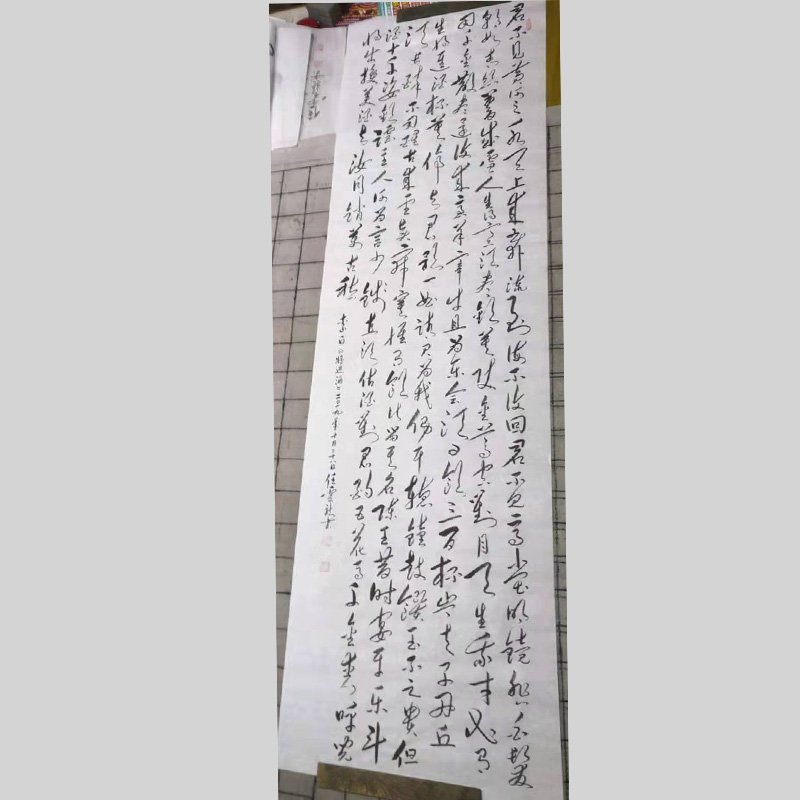 君不見黃河之水天上來奔流到海不復回君不見高堂明鏡悲白髮
朝如青絲暮成雪人生得意須盡歡莫使金尊空對月天生我材必有
用千金散盡還復來烹羊宰牛且為樂會須一飲三百杯岑夫子丹丘
生將進酒杯莫停與君歌一曲請君為我側耳聽鐘鼓饌玉不足貴但
願長醉不用醒古來聖賢皆寂寞惟有飲者留其名陳王昔時宴平樂斗
酒十千恣歡謔主人何為言少錢直須沽酒對君酌五花馬千金裘呼兒
將出換美酒與汝同銷萬古愁
李白將進酒二〇一九年十月二十八日任